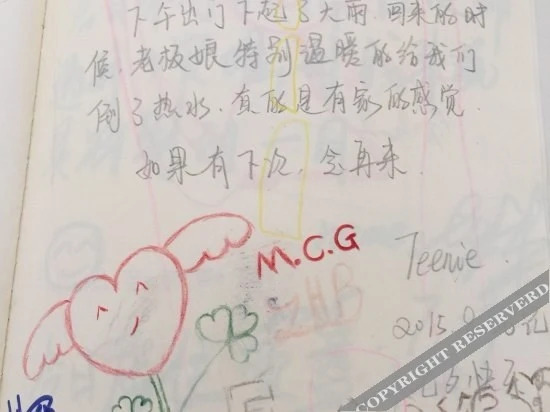 下午出门下起了大雨.回来的时
候,老板娘特别温暖的给我们
倒了热水.真的是有家的感觉.
如果有下次,会再来.
M.C.G
ZHB
Teenie.
2015.
COPYRIGHT RESERVERD